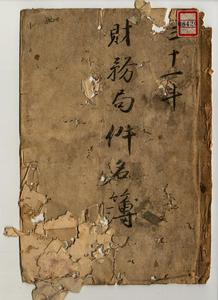 三十一年
財務局件名簿